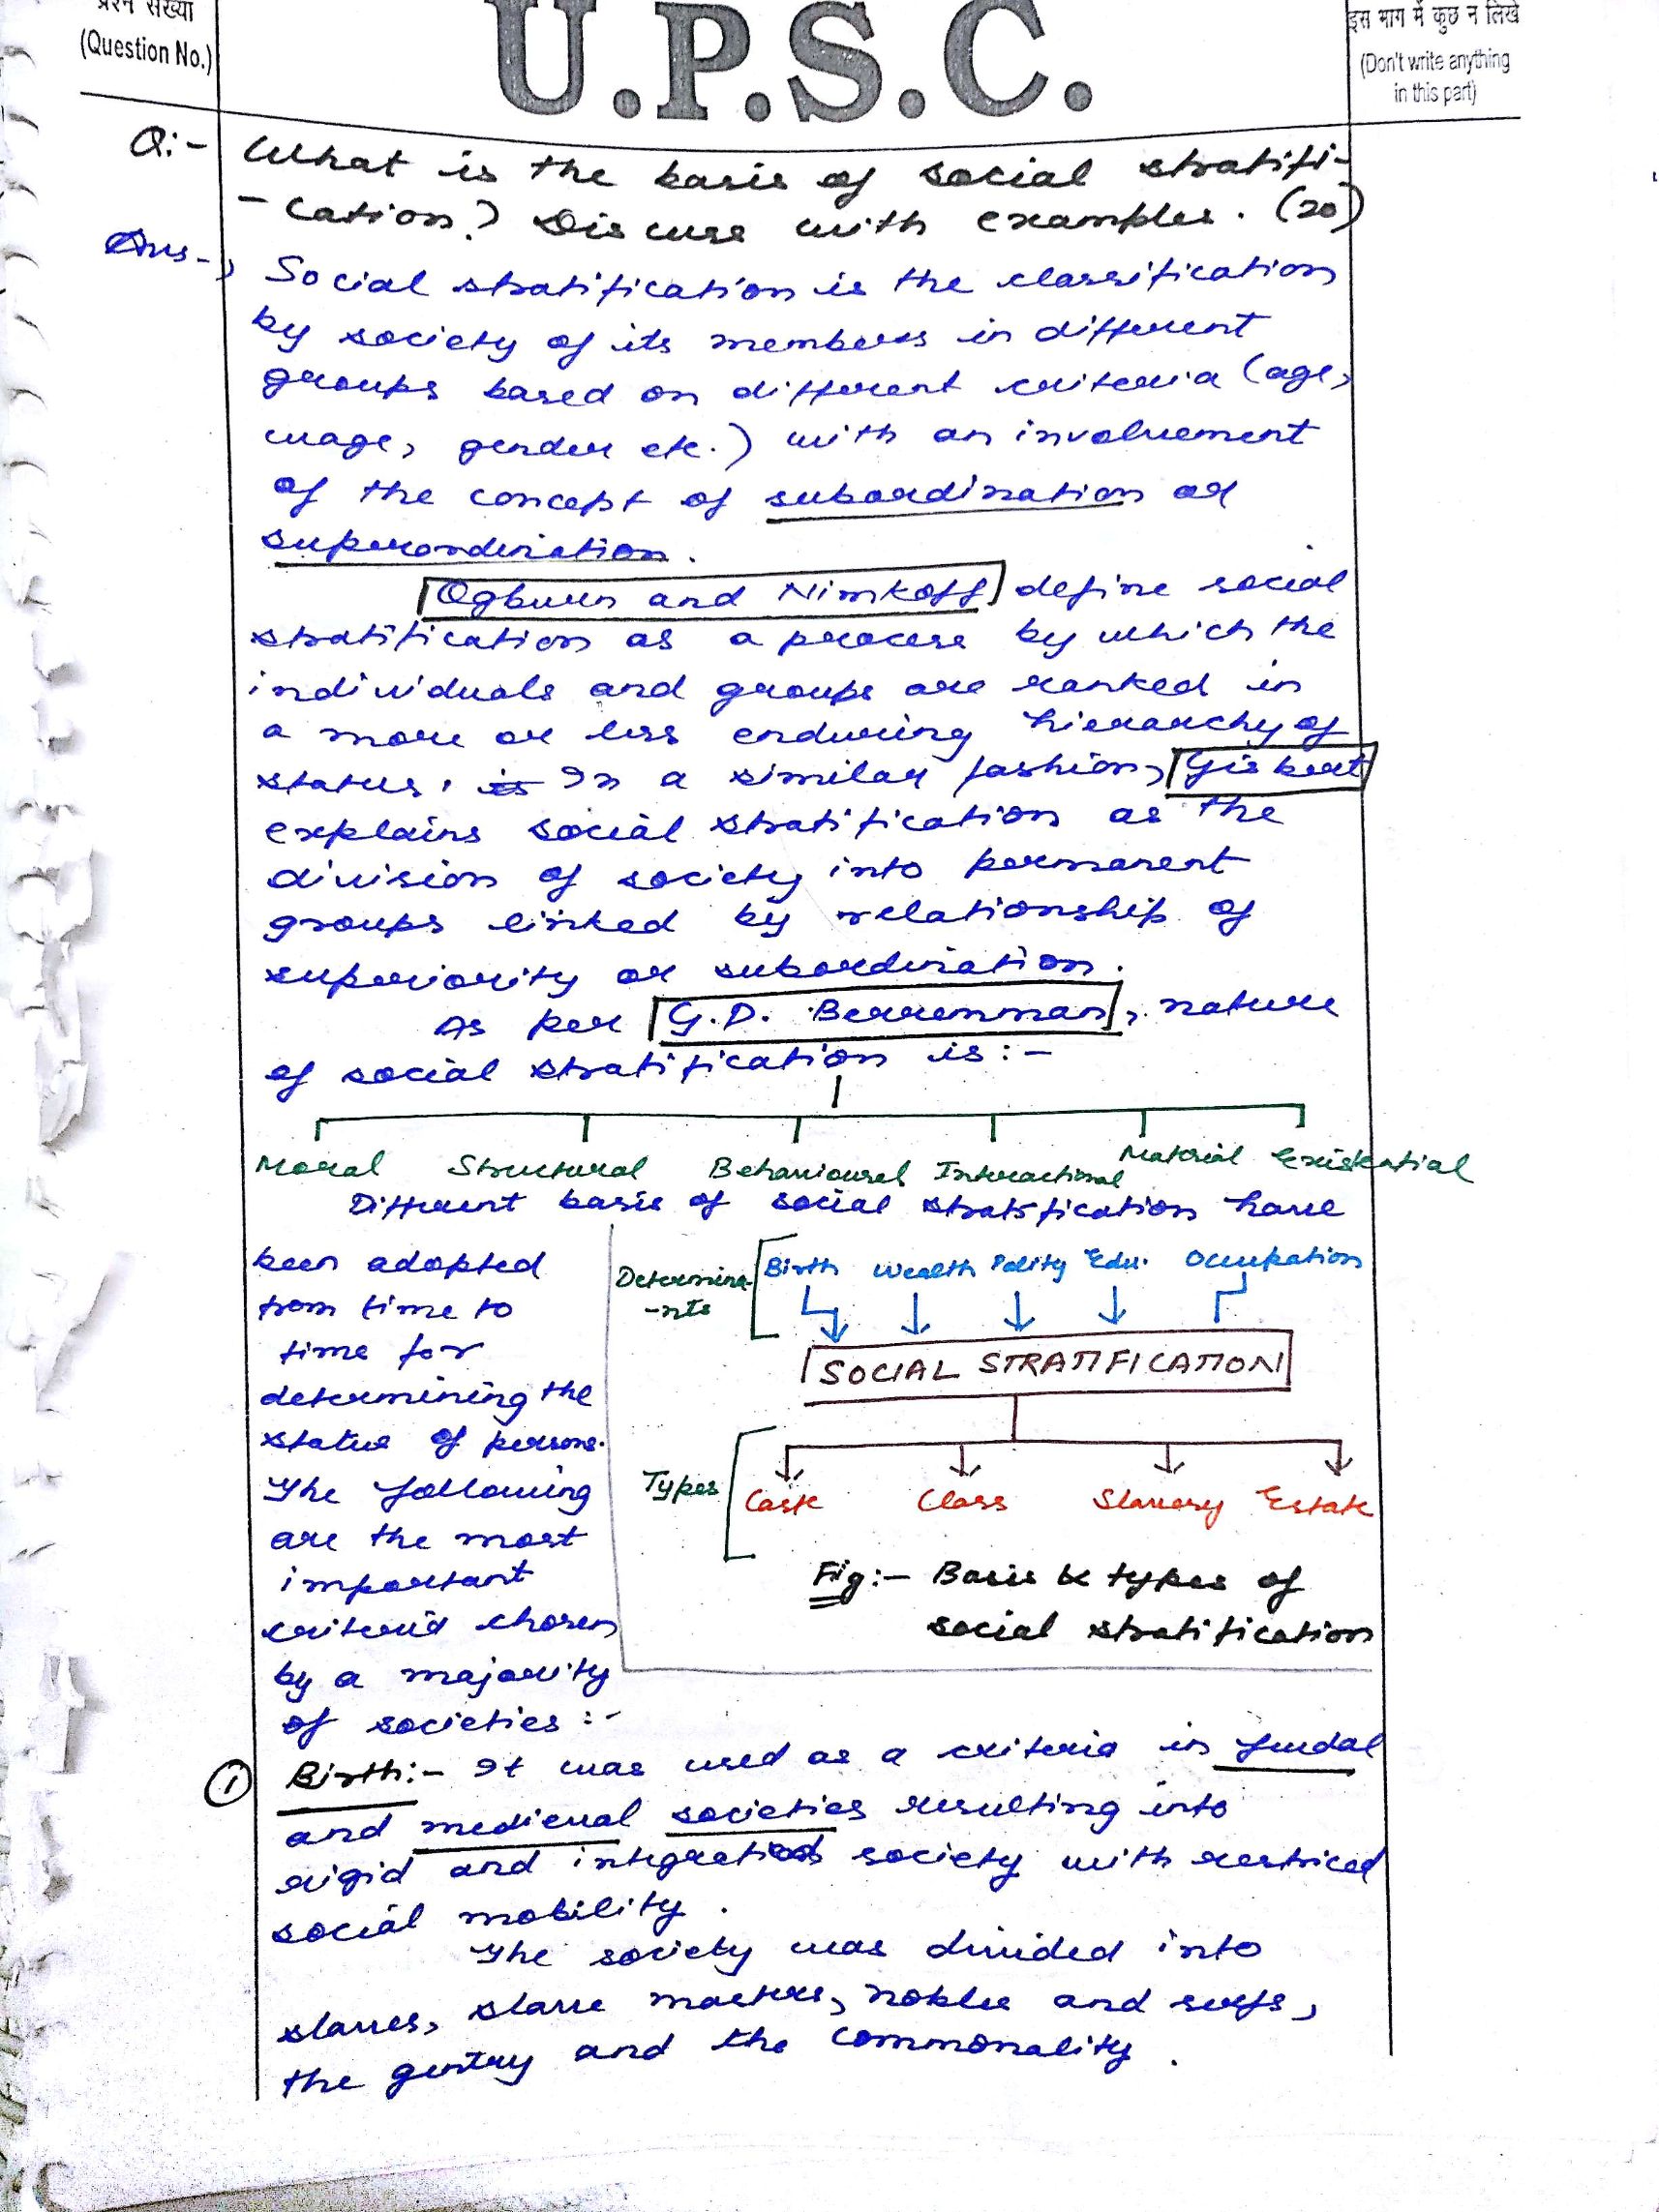 प्रश्न संख्या
(Question No.)
U.P.S.C.
इस भाग में कुछ न लिखें
(Don't write anything
in this part)
Q:- What is the basis of social stratifi-
-cation? Discuss with examples. (20)
Ans-, Social stratification is the classification
by society of its members in different
groups based on different criteria (age,
wage, gender etc.) with an involvement
of the concept of subordination or
superordination.
Ogburn and Nimkoff define social
stratification as a process by which the
individuals and groups are ranked in
a more or less enduring hierarchy of
status. In a similar fashion, Gisbert
explains social stratification as the
division of society into permanent
groups linked by relationship of
superiority or subordination.
As per G.D. Berremman, nature
of social stratification is:-
Moral Structural Behavioural Interactional Material Existential
Different basis of social stratification have
been adopted
from time to
time for
determining the
status of persons.
The following
are the most
important
criteria chosen
by a majority
of societies :-
Determina-
-nts
Birth Wealth Polity Edu. Occupation
SOCIAL STRATIFICATION
Types
Caste Class Slavery Estate
Fig:- Basis & types of
social stratification
① Birth:- It was used as a criteria in feudal
and medieval societies resulting into
rigid and integrated society with restriced
social mobility.
The society was divided into
slaves, slave masters, nobles and serfs,
the gentry and the commonality.